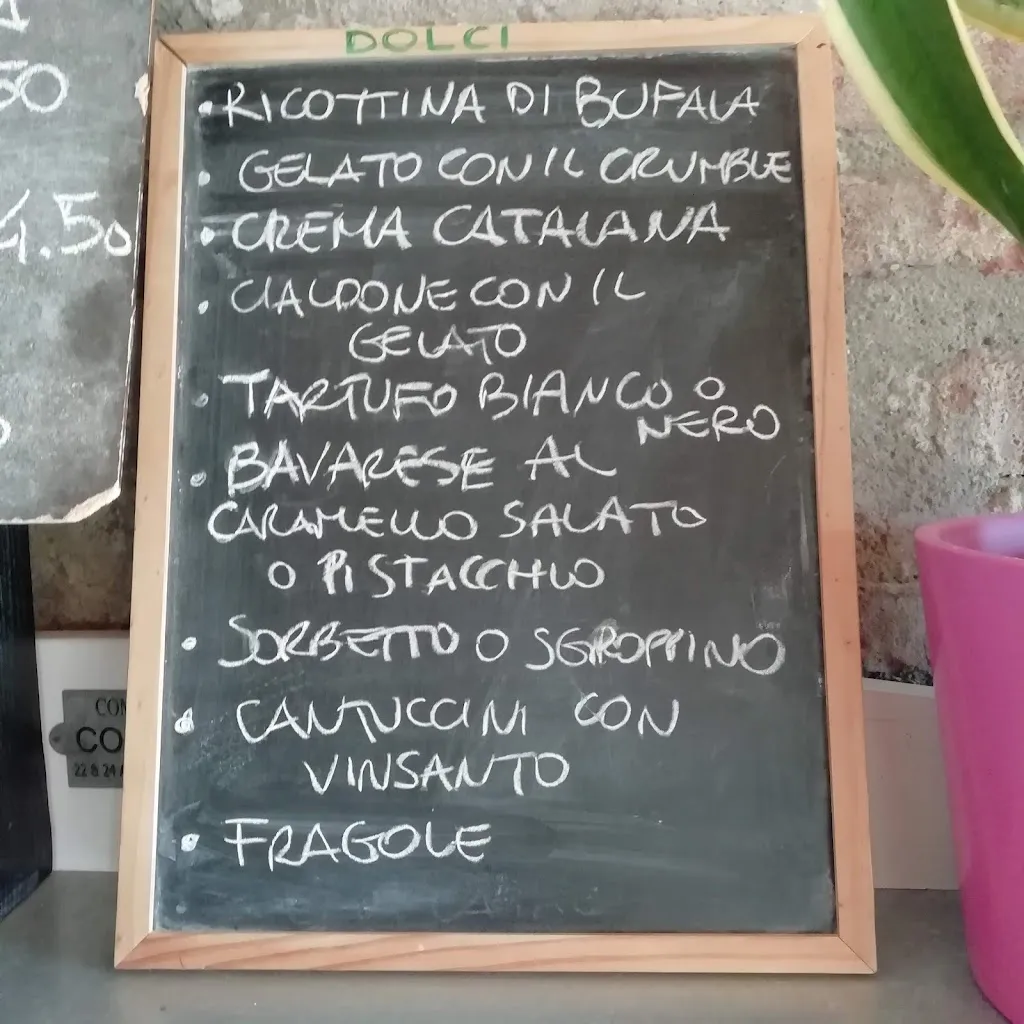 50
4.50
DOLCI
• RICOTTINA DI BUFALA
• GELATO CON IL CRUMBLE
• CREMA CATALANA
• CIALDONE CON IL
GELATO
• TARTUFO BIANCO O
NERO
• BAVARESE AL
CARAMELLO SALATO
O PISTACCHIO
• SORBETTO O SGROPPINO
• CANTUCCINI CON
VINSANTO
• FRAGOLE
CON
CO
22 & 24